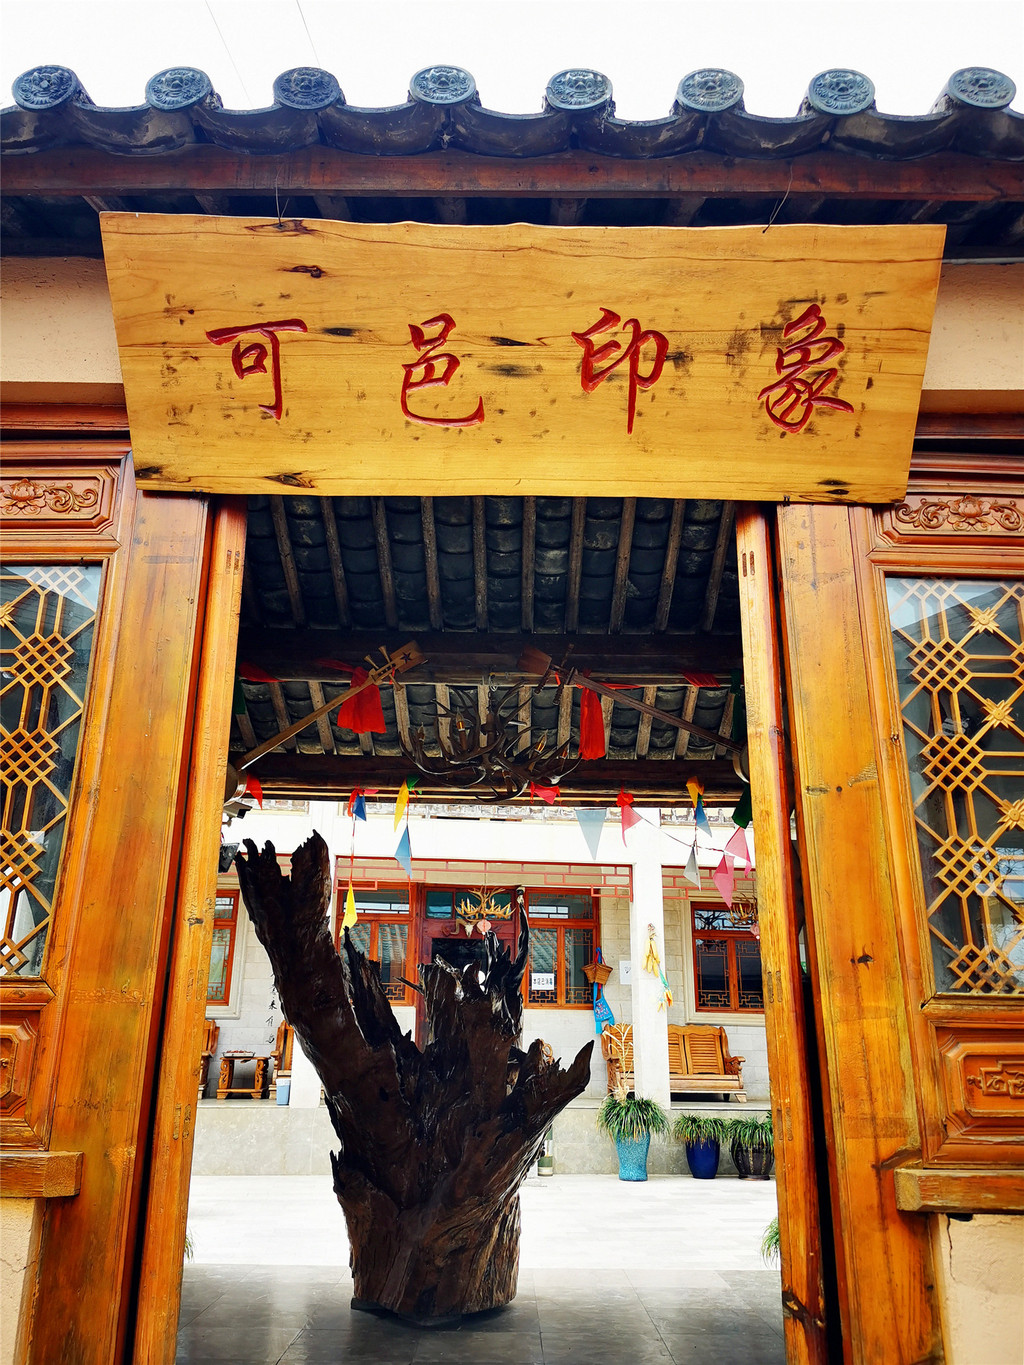 可邑印象